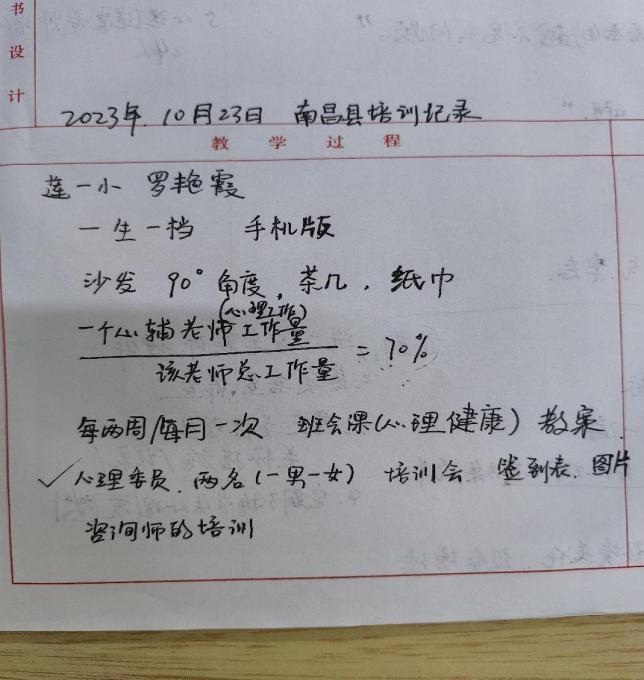 书
设
计
2023年10月23日 南昌县培训记录
教学过程
莲一小 罗艳霞
一生一档 手机版
沙发 90°角度,茶几,纸巾
(心理工作)
一个心辅老师工作量
= 70%
该老师总工作量
每两周/每月一次 班会课(心理健康)教案.
✓心理委员.两名(一男一女) 培训会 签到表.图片
咨询师的培训